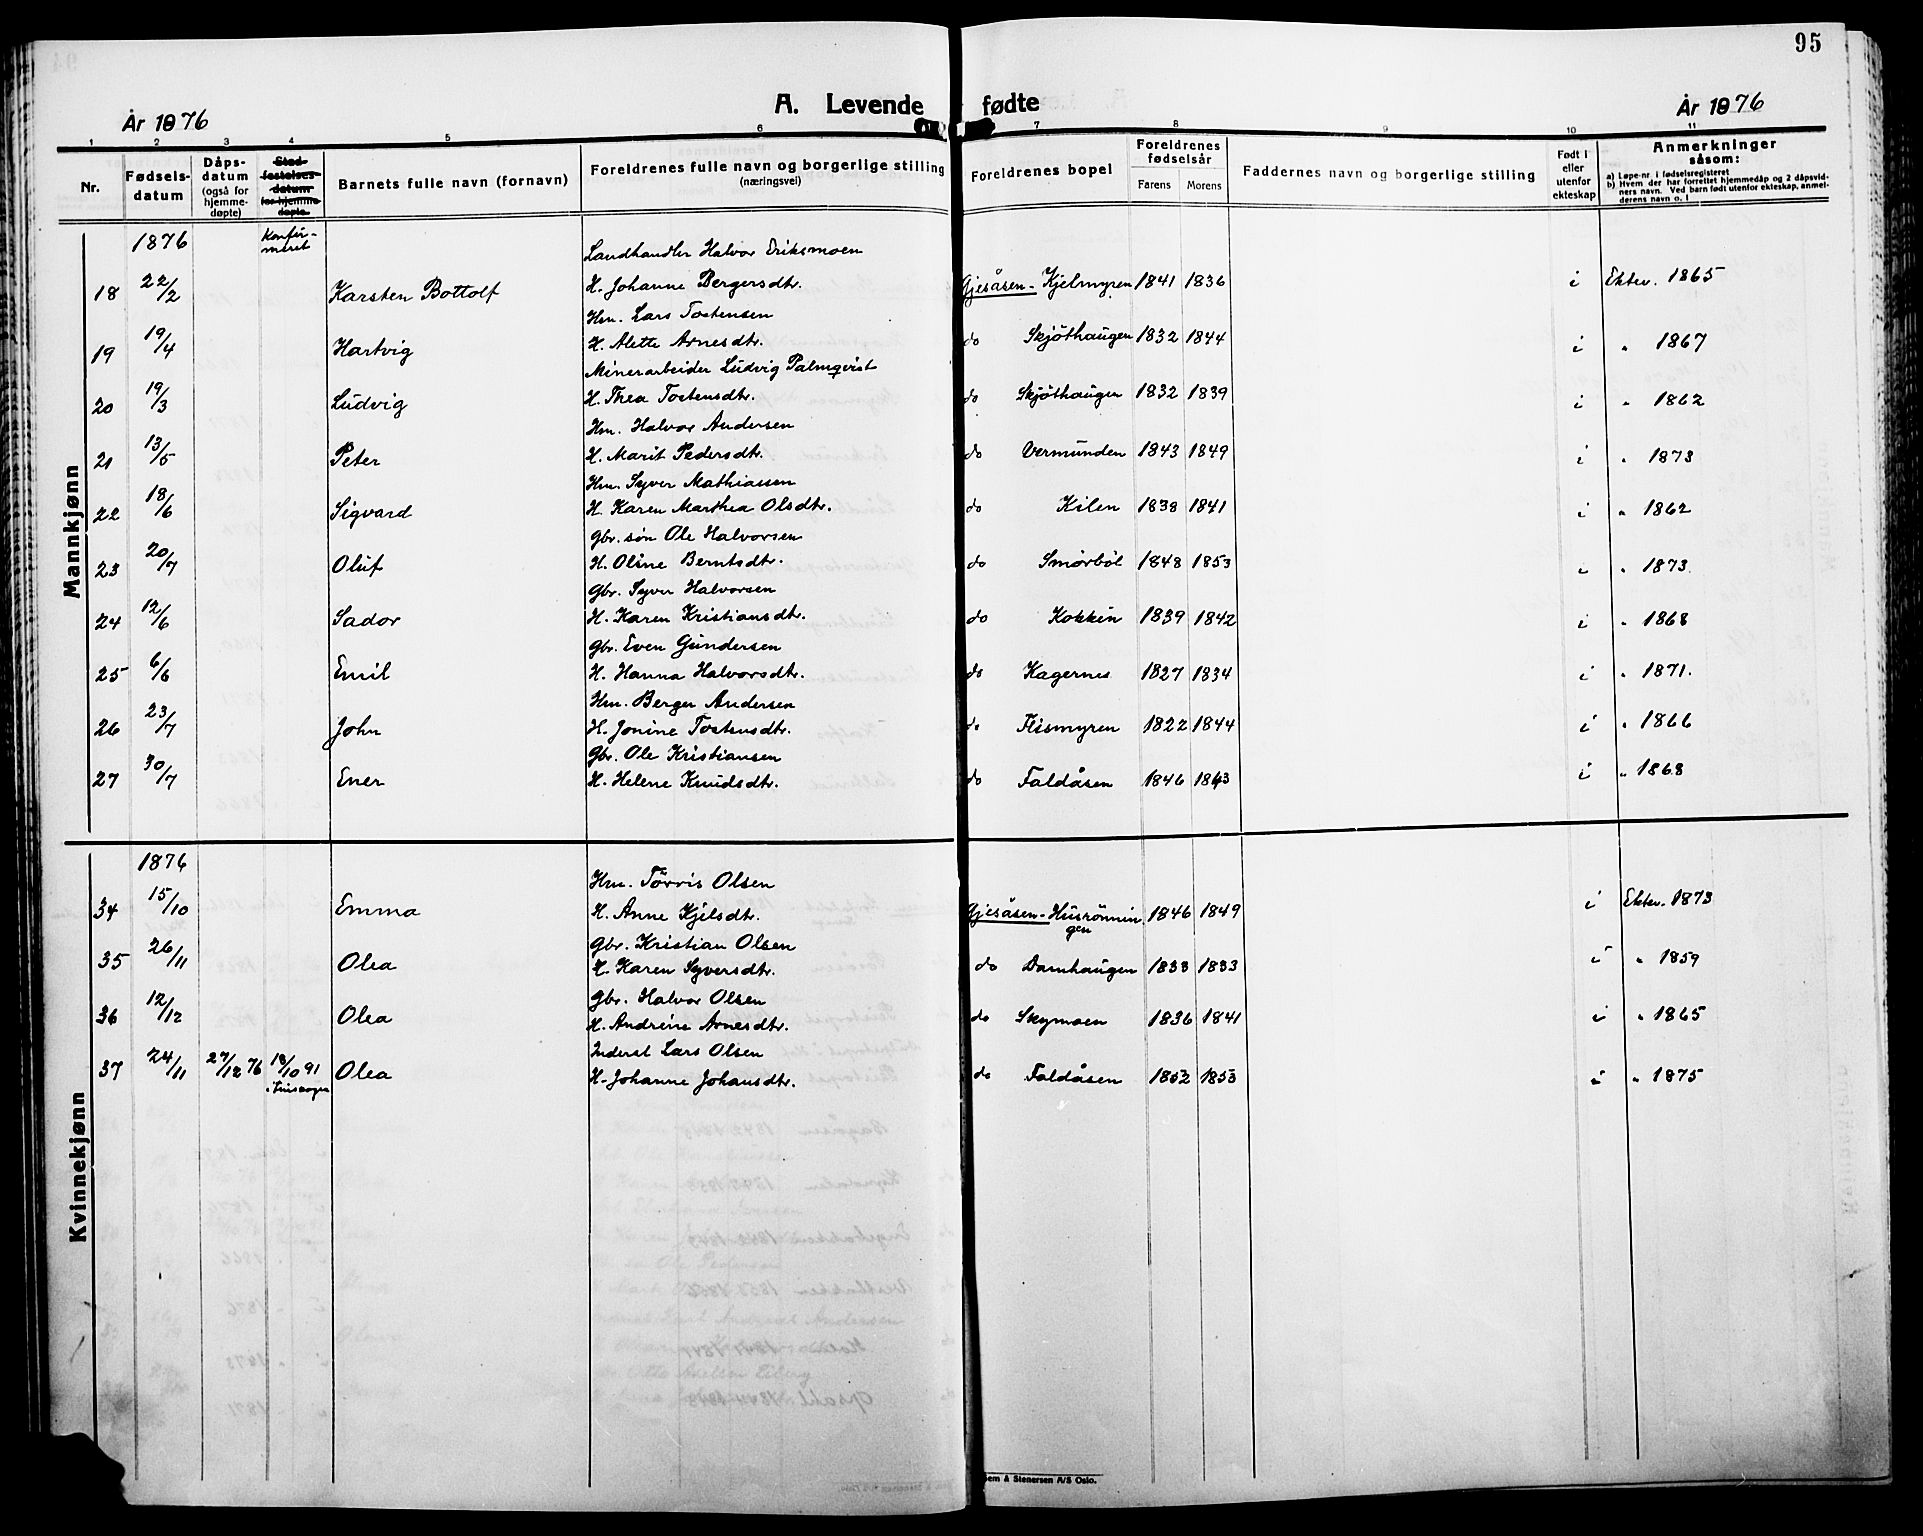 95
A. Levende fødte
År 1876
År 1876
1 2 3 4 5 6 7 8 9 10 11
Nr.
Fødsels-
datum
Dåps-
datum
(også for
hjemme-
døpte)
Stad-
festelses-
datum
for hjemme
døpte.
Barnets fulle navn (fornavn)
Foreldrenes fulle navn og borgerlige stilling
(næringsvei)
Foreldrenes bopel
Foreldrenes
fødselsår
Farens Morens
Faddernes navn og borgerlige stilling
Født i
eller
utenfor
ekteskap
Anmerkninger
såsom:
a) Løpe-nr. i fødselsregisteret
b) Hvem der har forrettet hjemmedåp og 2 dåpsvid-
ners navn. Ved barn født utenfor ekteskap, anmel-
derens navn o. l
Mannkjønn
1876 Konfir-
meret
Landhandler Halvor Eriksmoen
18 22/2 Karsten Bottolf H. Johanne Bergersdtr. Gjesåsen - Kjelmyren 1841 1836 i Ektev. 1865
Hm. Lars Tostensen
19 19/4 Hartvig H. Alette Arnesdtr. do Skjöthaugen 1832 1844 i " 1867
Minerarbeider Ludvig Palmqvist
20 19/3 Ludvig H. Thea Tostensdtr. do Skjöthaugen 1832 1839 i " 1862
Hm. Halvor Andersen
21 13/5 Peter H. Marit Pedersdtr. do Vermunden 1843 1849 i " 1873
Hm. Syver Mathiassen
22 18/6 Sigvard H. Karen Marthea Olsdtr. do Kilen 1838 1841 i " 1862
Gbr. søn Ole Halvorsen
23 20/7 Oluf H. Oline Berntsdtr. do Smörböl 1848 1853 i " 1873.
Gbr. Syver Halvorsen
24 12/6 Sador H. Karen Kristiansdtr. do Kokkin 1839 1842 i " 1868
Gbr. Even Gundersen
25 6/6 Emil H. Hanna Halvorsdtr. do Kagernes 1827 1834 i " 1871.
Hm. Berger Andersen
26 23/7 John H. Jonine Tostensdtr. do Flismyren 1822 1844 i " 1866
Gbr. Ole Kristiansen
27 30/7 Ener H. Helene Knudsdtr. do Faldåsen 1846 i " 1868
Kvinnekjønn
1876
Hm. Törris Olsen
34 15/10 Emma H. Anne Kjelsdtr. Gjesåsen - Husrönnin 1846 1849 i Ektev. 1873
gen
Gbr. Kristian Olsen
35 26/11 Olea H. Karen Syversdtr. do Damhaugen 1833 1833 i " 1859
Gbr. Halvor Olsen
36 12/12 Olea H. Andrine Arnesdtr. do Skymoen 1836 1841 i " 1865
Inderst Lars Olsen
37 24/11 27/12 76 18/10 91 Olea H. Johanne Johansdtr. do Faldåsen 1852 1853 i " 1875
Sem & Stenersen A/S Oslo.